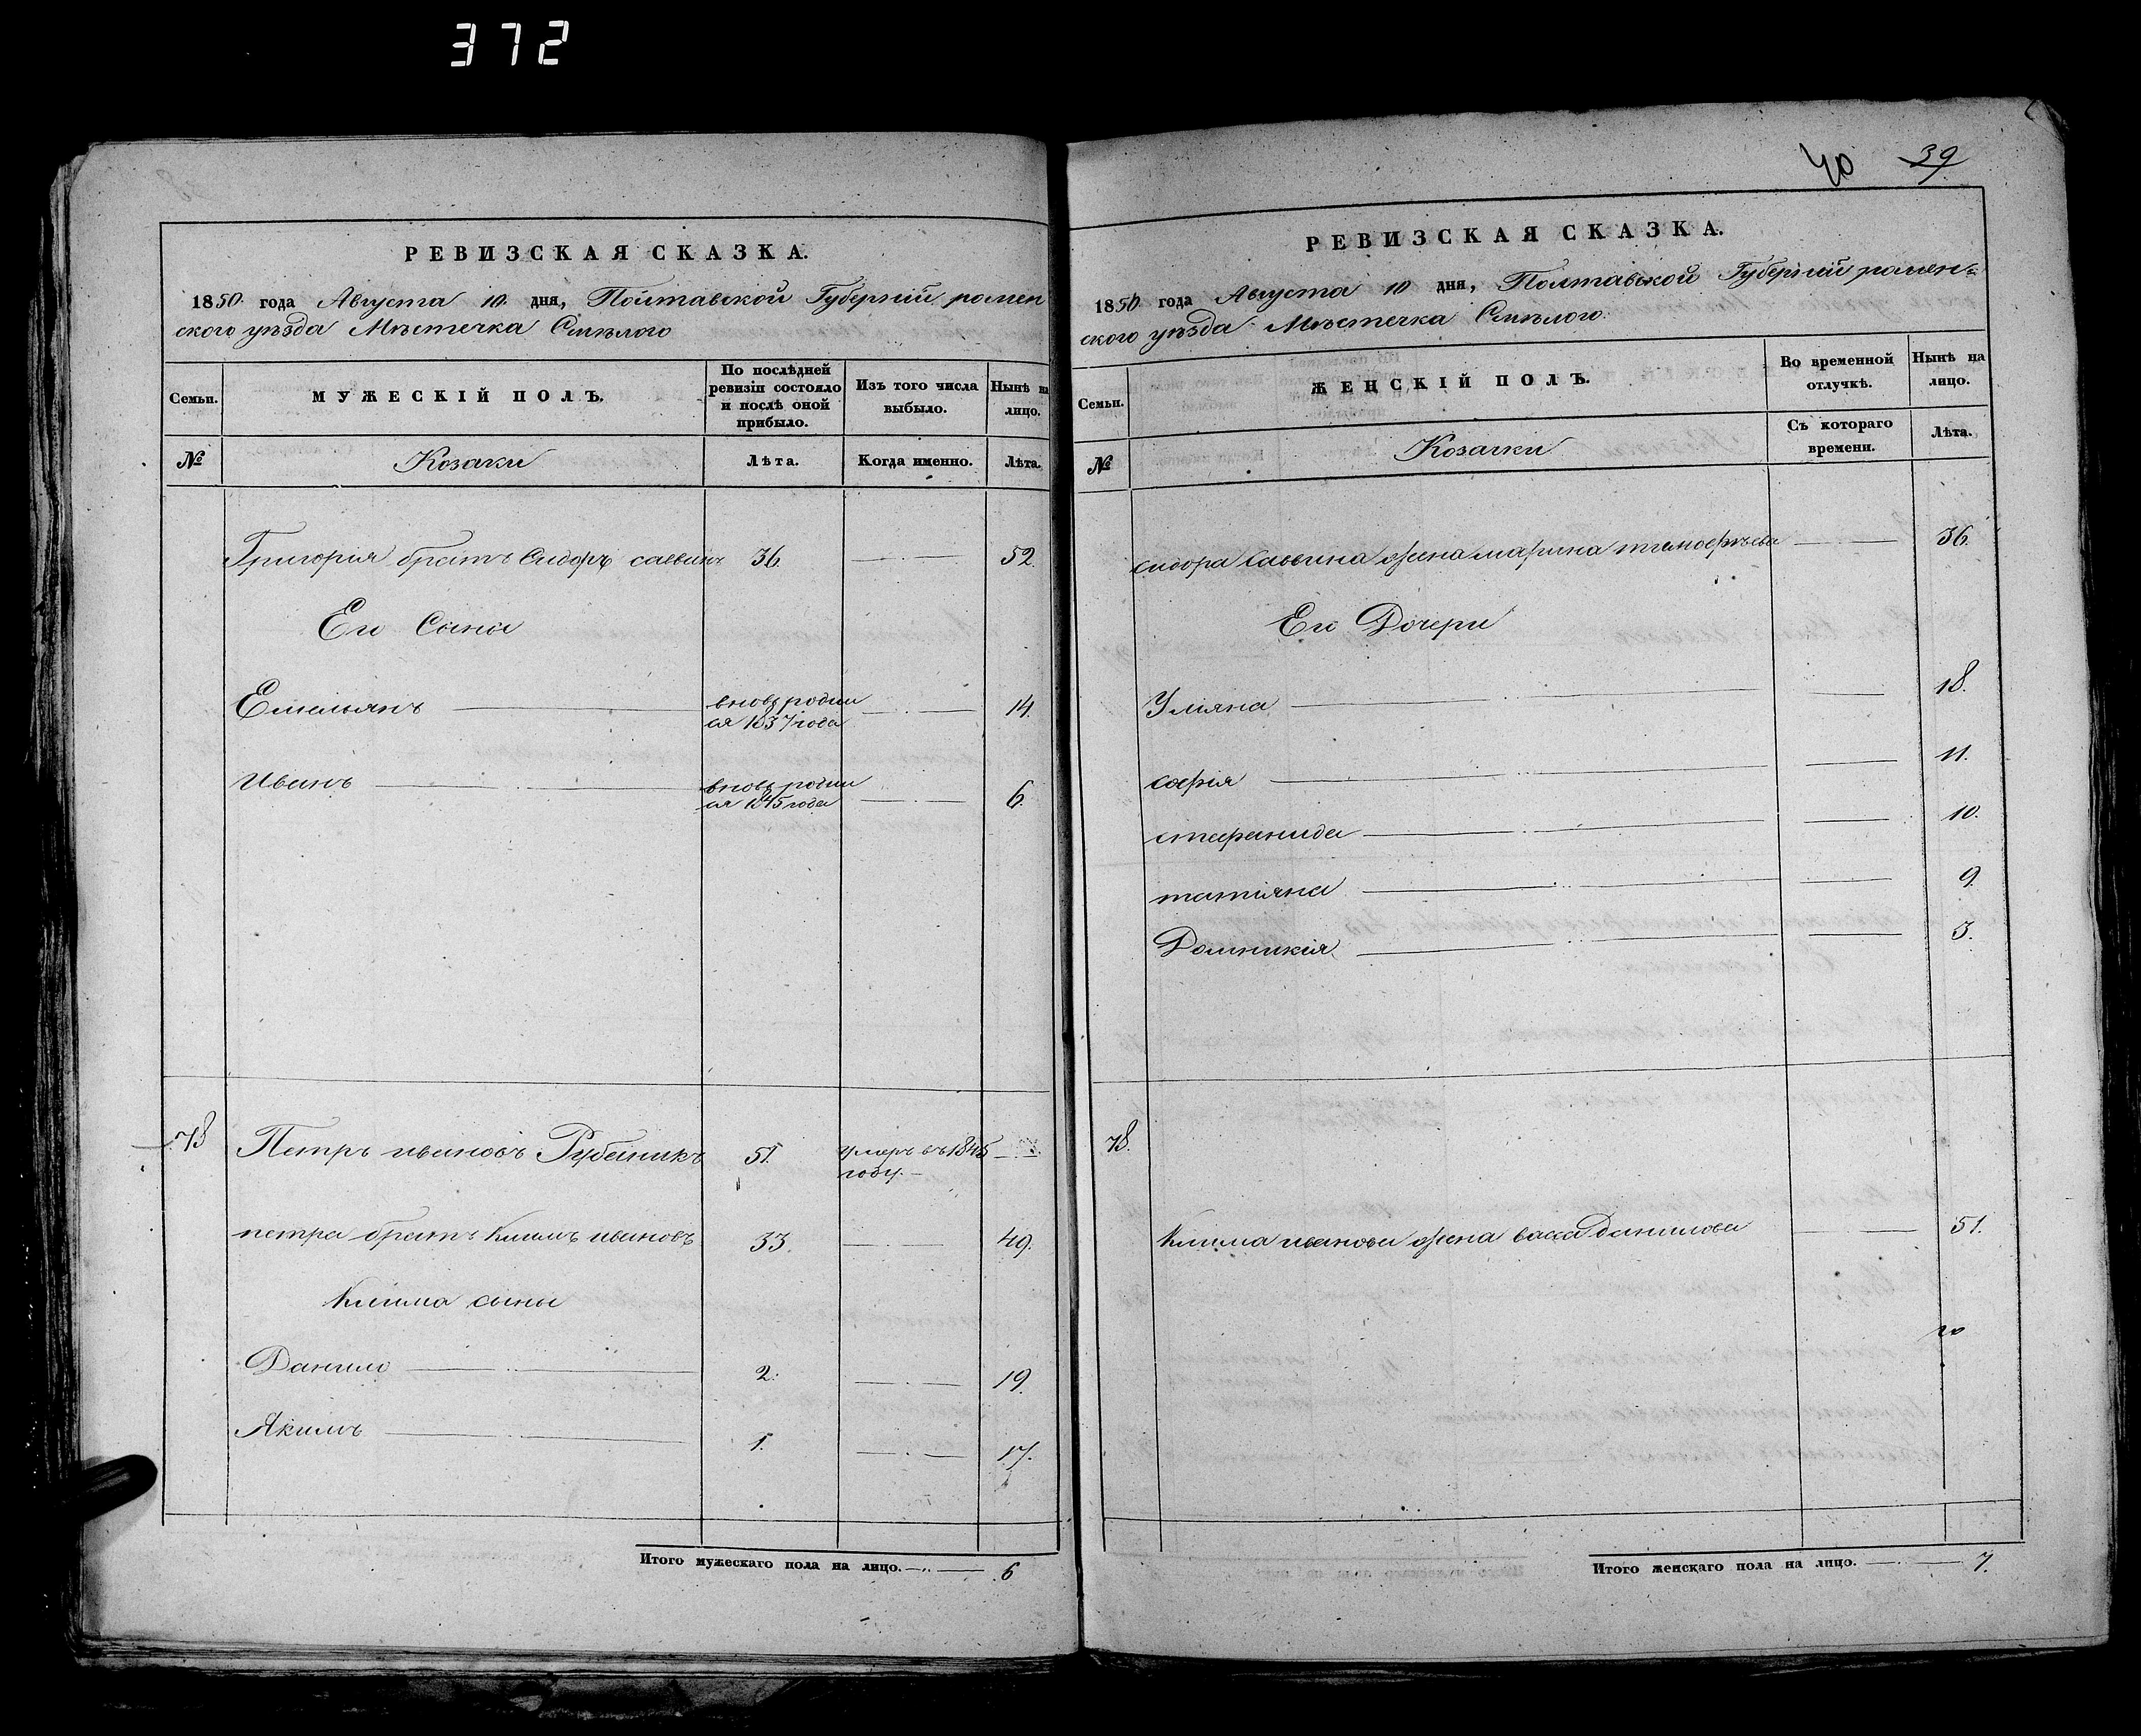 372
РЕВИЗСКАЯ СКАЗКА.
1850 года Августа 10 дня, Полтавской Губерніи ромен
ского уѣзда Мѣстечка Смѣлого
Семьи.
МУЖЕСКІЙ ПОЛЪ.
По послѣдней ревизіи состояло и послѣ оной прибыло.
Изъ того числа выбыло.
Нынѣ на лицо.
№
Козаки
Лѣта.
Когда именно.
Лѣта.
Григорія братъ Сидоръ саввинъ 36. 52.
Его Сыны
Емельянъ вновь родил
ся 1837 года 14.
Иванъ вновь родил
ся 1845 года 6.
78 Петръ ивановъ Рубаникъ 51. умеръ въ 1845
году.
петра братъ Климъ ивановъ 33. 49.
Клима сыны
Данило 2. 19.
Якимъ 1. 17.
Итого мужескаго пола на лицо. 6
40 39
РЕВИЗСКАЯ СКАЗКА.
1850 года Августа 10 дня, Полтавской Губерніи ромен=
ского уѣзда Мѣстечка Смѣлого.
Семьи.
ЖЕНСКІЙ ПОЛЪ.
Во временной отлучкѣ.
Нынѣ на лицо.
№
Козачки
Съ котораго времени.
Лѣта.
сидора Саввина жена марина тимофѣева 36.
Его Дочери
Уліяна 18.
софія 11.
стефанида 10.
татіяна 9.
Домникія 3.
78.
Клима иванова жена васса Данилова 51.
Итого женскаго пола на лицо. 7.